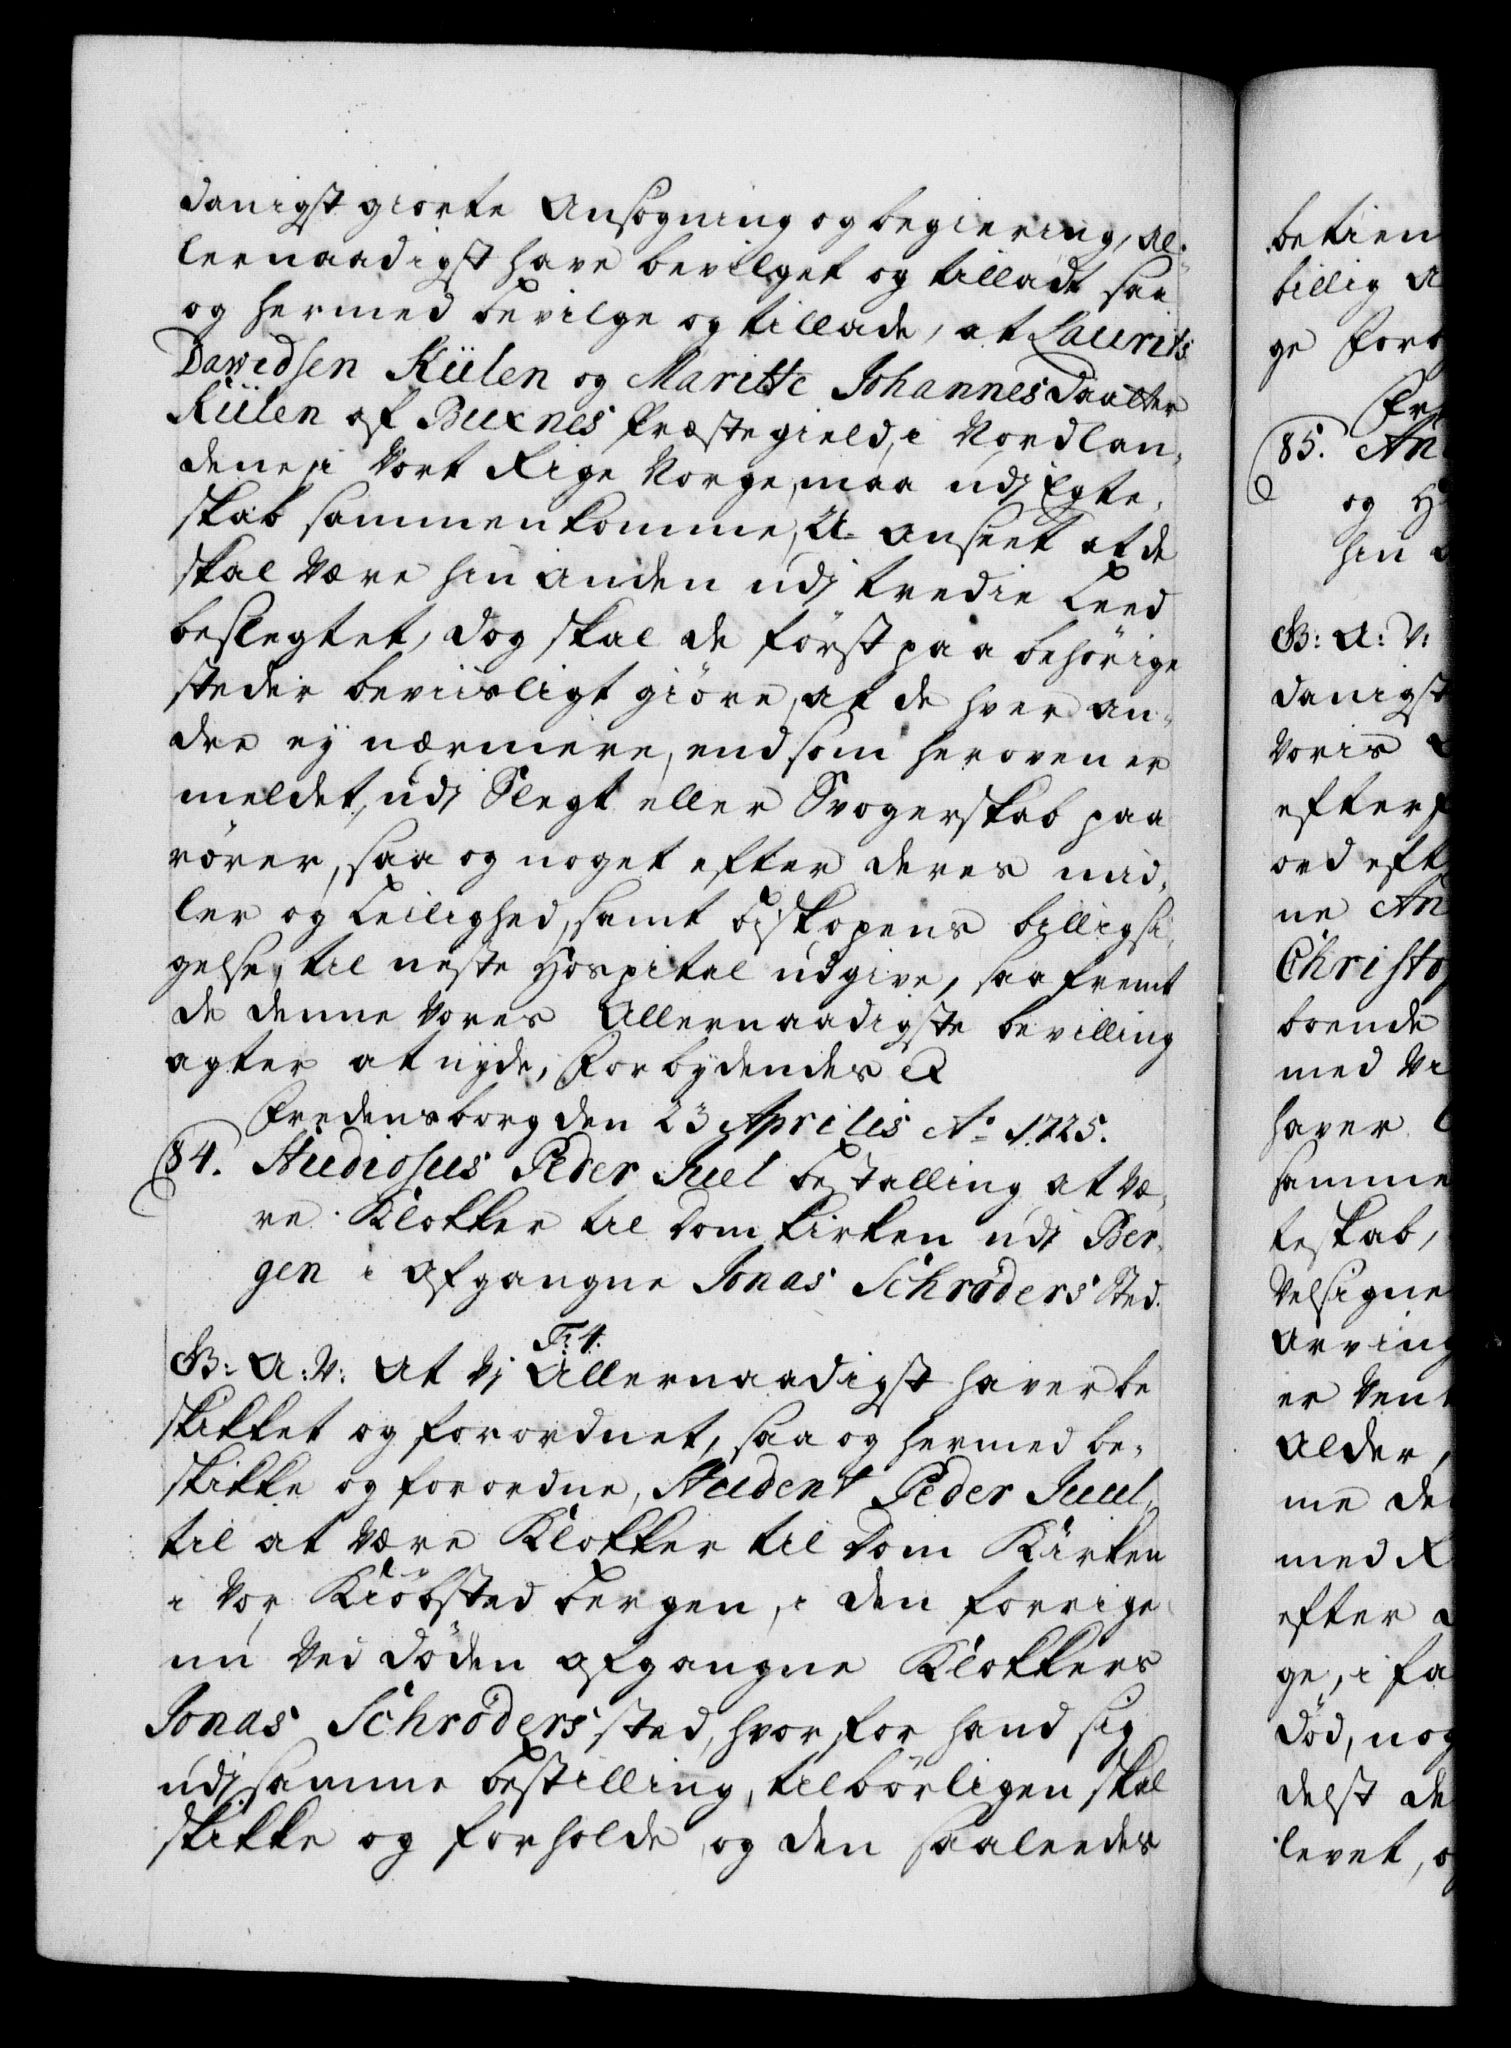 danigst giorte Ansøgning og begiering, al-
lernaadigst have bevilget og tilladt saa
og hermed bevilge og tillade, at Laurits
Davidsen Kiilen og Maritte Johannes Daatter
Kiilen af Buxnes Præstegield, i Nordlan-
dene, i Vort Rige Norge, maa udj Egte-
skab sammenkomme, U-anseet at de
skal være hin anden udj tredie Leed
beslegtet, dog skal de først paa behørige
steder beviisligt giøre, at de hver an-
dre ej nærmere, end som heroven er
meldet, udj Slegt eller Svogerskab paa
rører, saa og noget efter deres mid-
ler og Leilighed, samt biskopens billigsi-
gelse, til neste Hospital udgive, saafremt
de denne Vores Allernaadigste bevilling
agter at nyde, Forbydendes &
Fredensborg den 23 Aprilis Ao 1725.
84. Studiosus Peder Juel bestalling at væ-
re Klokker til Dom Kirken udj Ber-
gen i afgangne Jonas Schrøders Sted.
F: 4.
G: A: V: At Vj Allernaadigst haver be
skikket og forordnet, saa og hermed be-
skikke og forordne, Student Peder Juul,
til at være Klokker til Dom Kirken
i Vor Kiøbsted Bergen, i den forrige
nu ved døden afgangne Klokkers
Jonas Schrøders sted, hvorfor hand sig
udj samme bestilling, tilbørligen skal
skikke og forholde, og den saaleedes
betien
billig A
ge Forb
Fre
85. An
og H
hin a
G: A: V:
danigst
Voris
efter
ord eft
ne An
Christo
boende
med Vi
haver
samme
teskab,
Velsigne
Arving
er Ven
Alder,
me de
med
efter
ge, i fa
død, nog
delst de
levet, o